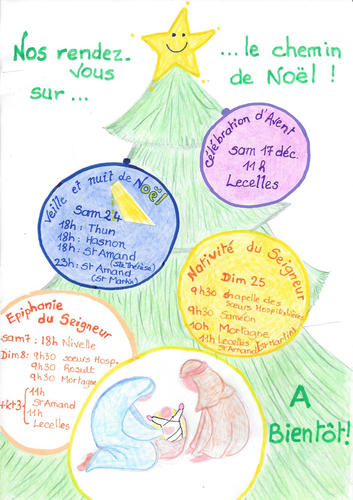 Nos rendez-
vous
sur...
...le chemin
de Noël !
Célébration d'Avent
sam 17 déc.
11h
Lecelles
Veille et nuit de Noël
Sam 24
18h : Thun
18h : Hasnon
18h : St Amand
(Ste Thérèse)
23h : St Amand
(St Martin)
Nativité du Seigneur
Dim 25
9h30 chapelle des
sœurs Hospitalières
9h30 Saméon
10h Mortagne
11h Lecelles
St Amand (St Martin)
Epiphanie
du Seigneur
sam 7 : 18h Nivelle
Dim 8 : 9h30 sœurs Hosp.
9h30 Rosult
9h30 Mortagne
11h
St Amand
11h
Lecelles
A
Bientôt!